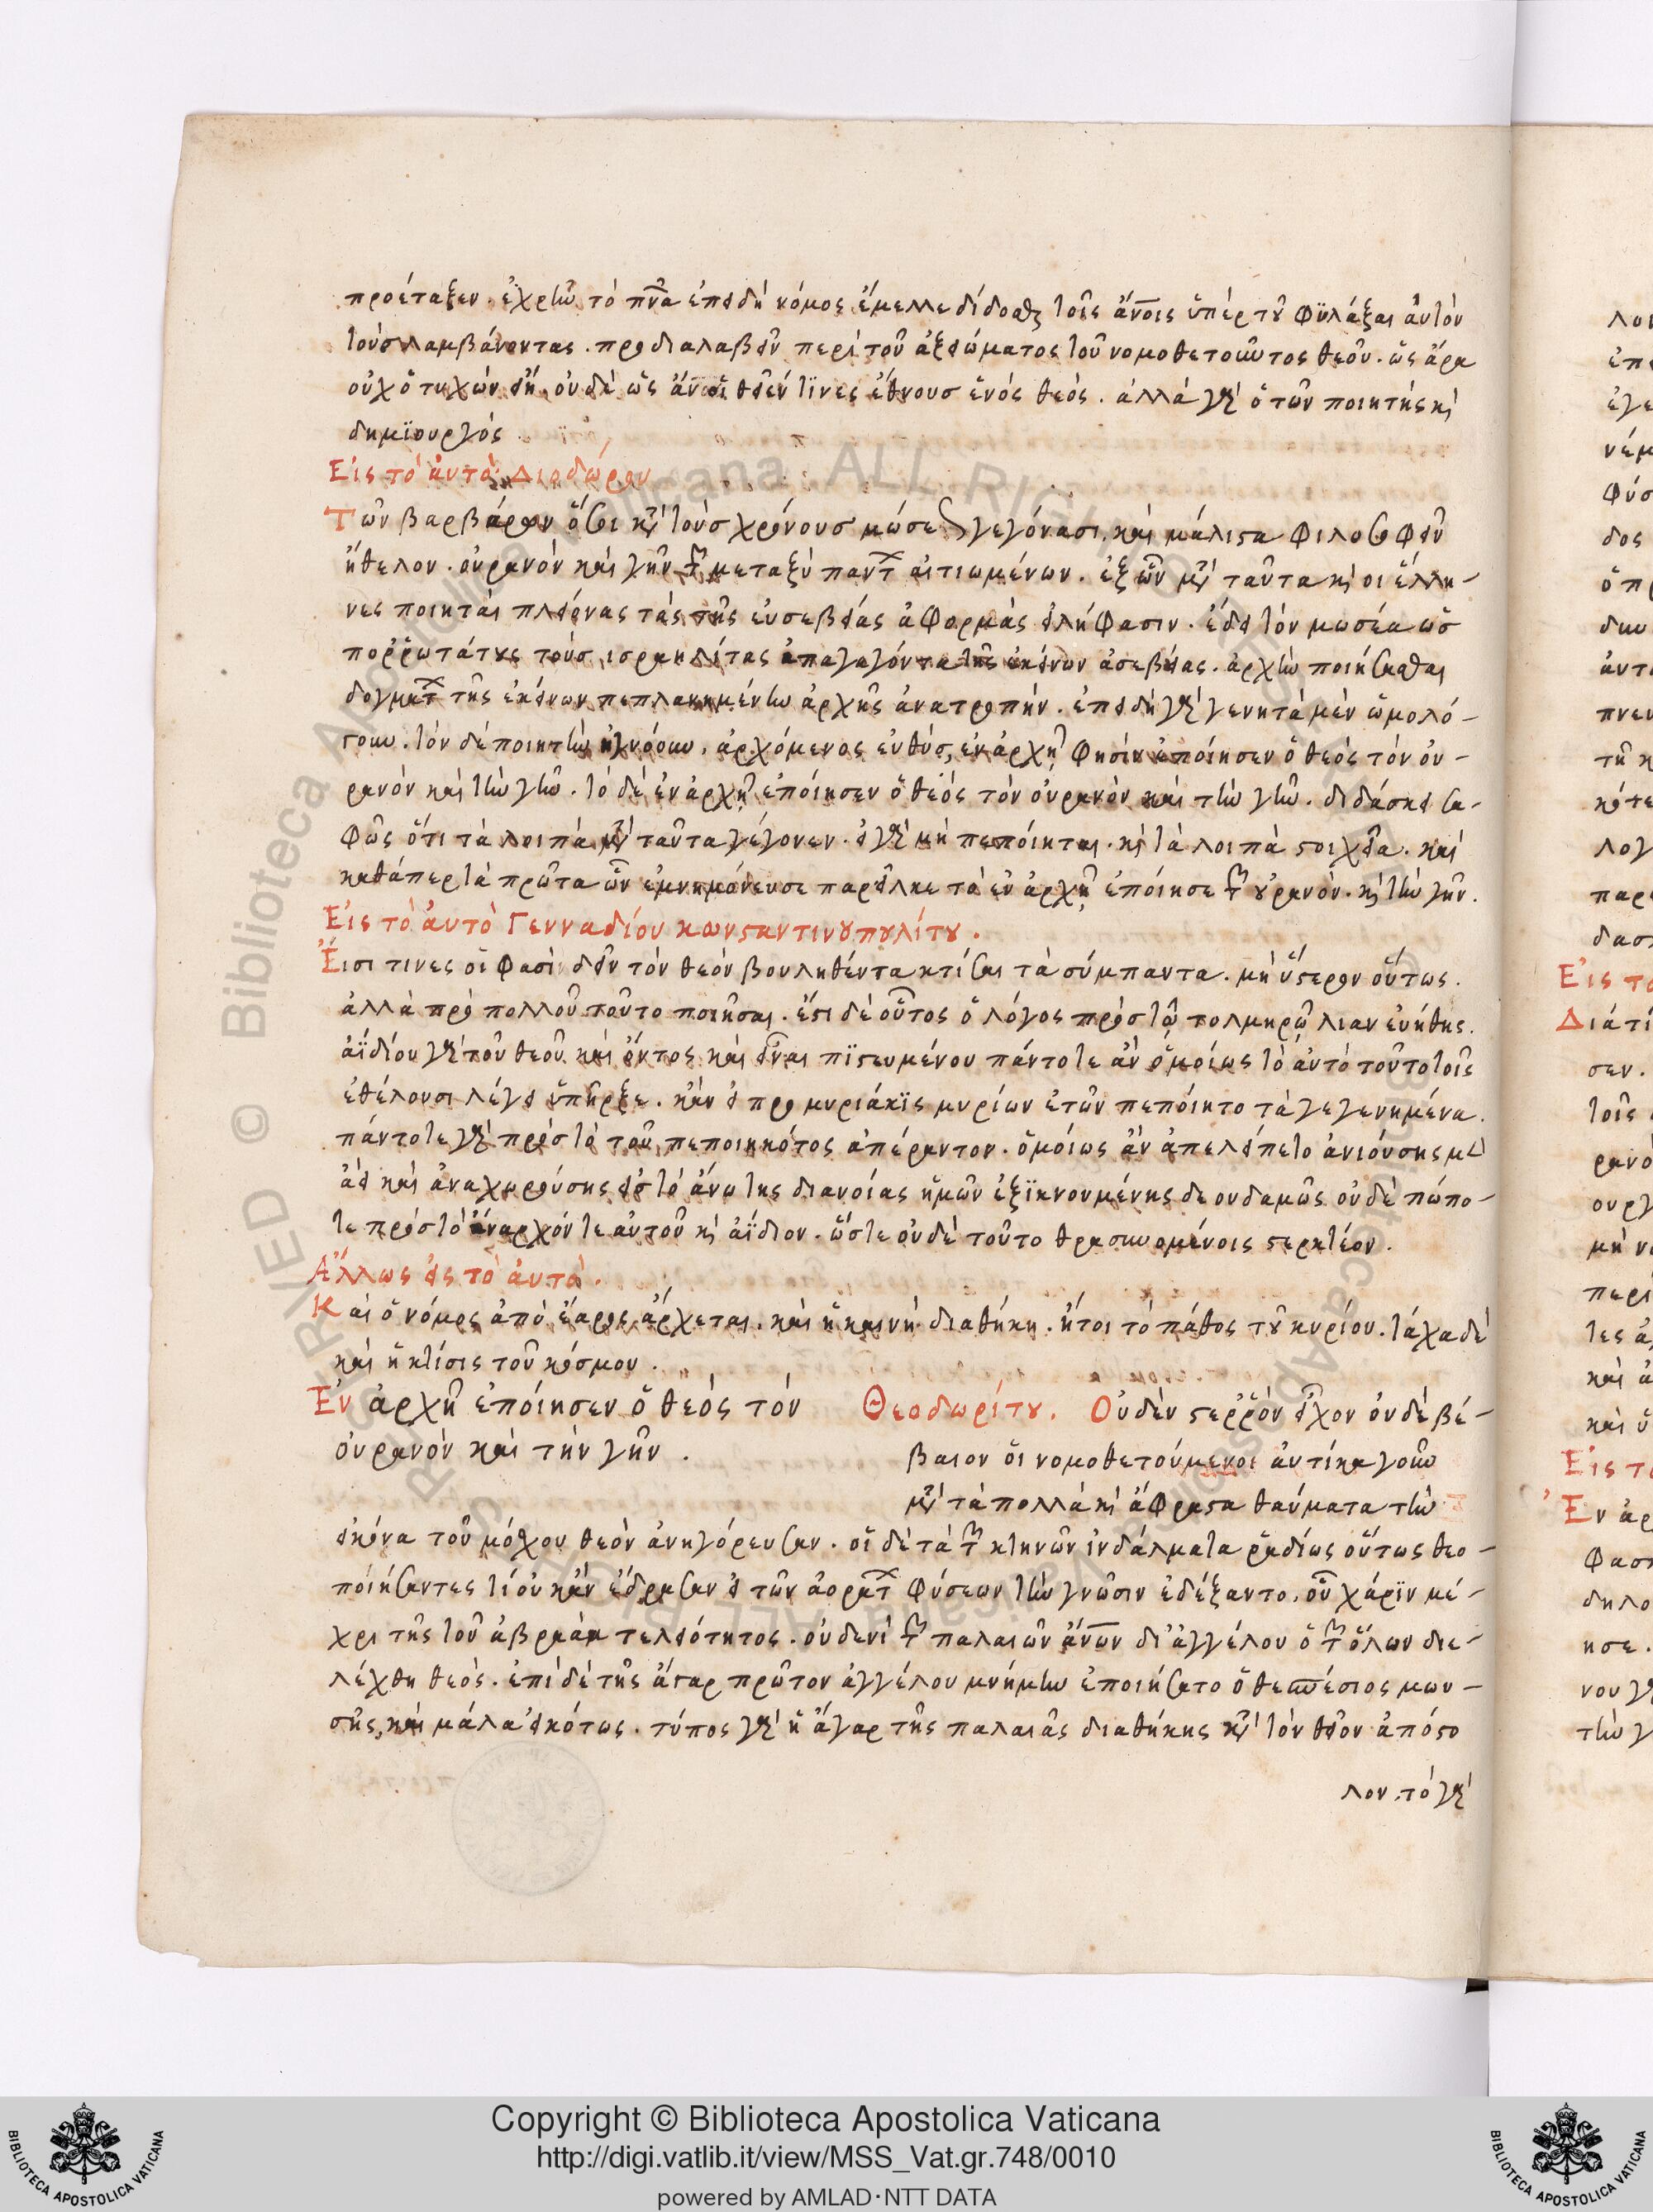 προέταξεν. ἐχρῆν τὸ πνᾶ ἐπειδὴ νόμος ἔμελλε δίδοσθαι τοῖς ἀνοις ὑπὲρ τοῦ φϋλάξαι αὐτὸν
τοὺς λαμβάνοντας. προδιαλαβεῖν περὶ τοῦ ἀξιώματος τοῦ νομοθετοῦντος θεοῦ. ὡς ἄρα
οὐχ ὁ τυχὼν εἴη οὐδὲ ὡς ἂν τινες ἔθνους ἑνὸς θεός. ἀλλὰ γὰρ ὁ τῶν ποιητὴς καὶ
δημϊουργός.
Εἰς τὸ αὐτὸ Διοδώρου
Τῶν βαρβάρων ὅσοι κατὰ τοὺς χρόνους μώσεως γεγόνασι, καὶ μάλιστα φιλοσοφεῖν
ἤθελον. οὐρανὸν καὶ γῆν τῶν μεταξὺ πάντων αἰτιωμένων. ἐξ ὧν μετὰ ταῦτα καὶ οἱ ἕλλη-
νες ποιηταὶ πλείονας τὰς τῆς εὐσεβείας ἀφορμὰς εἰλήφασιν. ἔδει τὸν μωσέα ὡς
πορρωτάτους τοὺς ἰσραηλίτας ἀπαγαγόντα τῆς ἐκείνων ἀσεβείας. ἀρχὴν ποιήσασθαι
δογμάτων τῆς ἐκείνων πεπλανημένην ἀρχῆς ἀνατροπήν. ἐπειδὴ γὰρ γενητὰ μὲν ὡμολό-
γουν. τὸν δὲ ποιητὴν ἠγνόουν. ἀρχόμενος εὐθὺς, ἐν ἀρχῇ φησὶν ἐποίησεν ὁ θεὸς τὸν οὐ-
ρανὸν καὶ τὴν γῆν. τὸ δὲ ἐν ἀρχῇ ἐποίησεν ὁ θεὸς τὸν οὐρανὸν καὶ τὴν γῆν. διδάσκει σα-
φῶς ὅτι τὰ λοιπὰ μετὰ ταῦτα γέγονεν. εἰ γὰρ μὴ πεποίηται. καὶ τὰ λοιπὰ στοιχεῖα. καὶ
καθάπερ τὰ πρῶτα ὧν ἐμνημόνευσε παρεῖλκε τὸ ἐν ἀρχῇ ἐποίησε τὸν οὐρανὸν. καὶ τὴν γῆν.
Εἰς τὸ αὐτὸ Γενναδίου κωνσταντινουπολίτου.
Εἰσί τινες οἵ φασὶ δεῖν τὸν θεὸν βουληθέντα κτίσαι τὰ σύμπαντα. μὴ ὕστερον οὕτως.
ἀλλὰ πρὸ πολλοῦ τοῦτο ποιῆσαι. ἔστι δὲ οὗτος ὁ λόγος πρὸς τῷ τολμηρῷ λίαν εὐήθης.
ἀϊδίου γὰρ τοῦ θεοῦ καὶ ὄντος καὶ εἶναι πϊστευμένου πάντοτε ἂν ὁμοίως τὸ αὐτὸ τοῦτο τοῖς
ἐθέλουσι λέγειν ὑπῆρξε. κἂν εἰ προ μυριάκϊς μυρίων ἐτῶν πεποίητο τὰ γεγενημένα.
πάντοτε γὰρ πρὸς τὸ τοῦ πεποιηκότος ἀπέραντον. ὁμοίως ἂν ἀπελείπετο ἀνιούσης μὲν
ἀεὶ καὶ ἀναχωρούσης εἰς τὸ ἄνω τῆς διανοίας ἡμῶν ἐξϊκνουμένης δε ουδαμῶς οὐδὲ πώπο-
τε πρὸς τὸ ἄναρχόν τε αὐτοῦ καὶ ἀΐδιον. ὥστε οὐδὲ τοῦτο θρασυνομένοις στερκτέον.
Ἄλλως εἰς τὸ αὐτό.
Καὶ ὁ νόμος ἀπὸ ἔαρος ἄρχεται. καὶ ἡ καινὴ διαθήκη. ἤτοι τὸ πάθος τοῦ κυρίου. τάχα δὲ
καὶ ἡ κτίσις τοῦ κόσμου.
Ἐν ἀρχῇ ἐποίησεν ὁ θεὸς τὸν
οὐρανὸν καὶ τὴν γῆν.
Θεοδωρίτου. Οὐδὲν στερρὸν εἶχον οὐδὲ βέ-
βαιον οἱ νομοθετούμενοι αὐτίκα γοῦν
μετὰ τὰ πολλὰ καὶ ἄφραστα θαύματα τὴν
εἰκόνα τοῦ μόσχου θεὸν ἀνηγόρευσαν. οἱ δὲ τὰ τῶν κτηνῶν ἰνδάλματα ῥαδίως οὕτως θεο-
ποιήσαντες τί οὐκ ἂν ἔδρασαν εἰ τῶν ἀοράτων φύσεων τὴν γνῶσιν ἐδέξαντο. οὗ χάρϊν μέ-
χρι τῆς τοῦ ἀβραὰμ τελειότητος. οὐδενὶ τῶν παλαιῶν ἀνων δι' ἀγγέλου ὁ τῶν ὅλων διε-
λέχθη θεός. ἐπὶ δὲ τῆς ἄγαρ πρῶτον ἀγγέλου μνήμην ἐποιήσατο ὁ θεσπέσιος μωυ-
σῆς, καὶ μάλα εἰκότως. τύπος γὰρ ἡ ἄγαρ τῆς παλαιᾶς διαθήκης κατὰ τὸν θεῖον ἀπόστο
λον. τὸ γὰρ
Copyright © Biblioteca Apostolica Vaticana
http://digi.vatlib.it/view/MSS_Vat.gr.748/0010
powered by AMLAD·NTT DATA
BIBLIOTECA APOSTOLICA VATICANA
BIBLIOTECA APOSTOLICA VATICANA